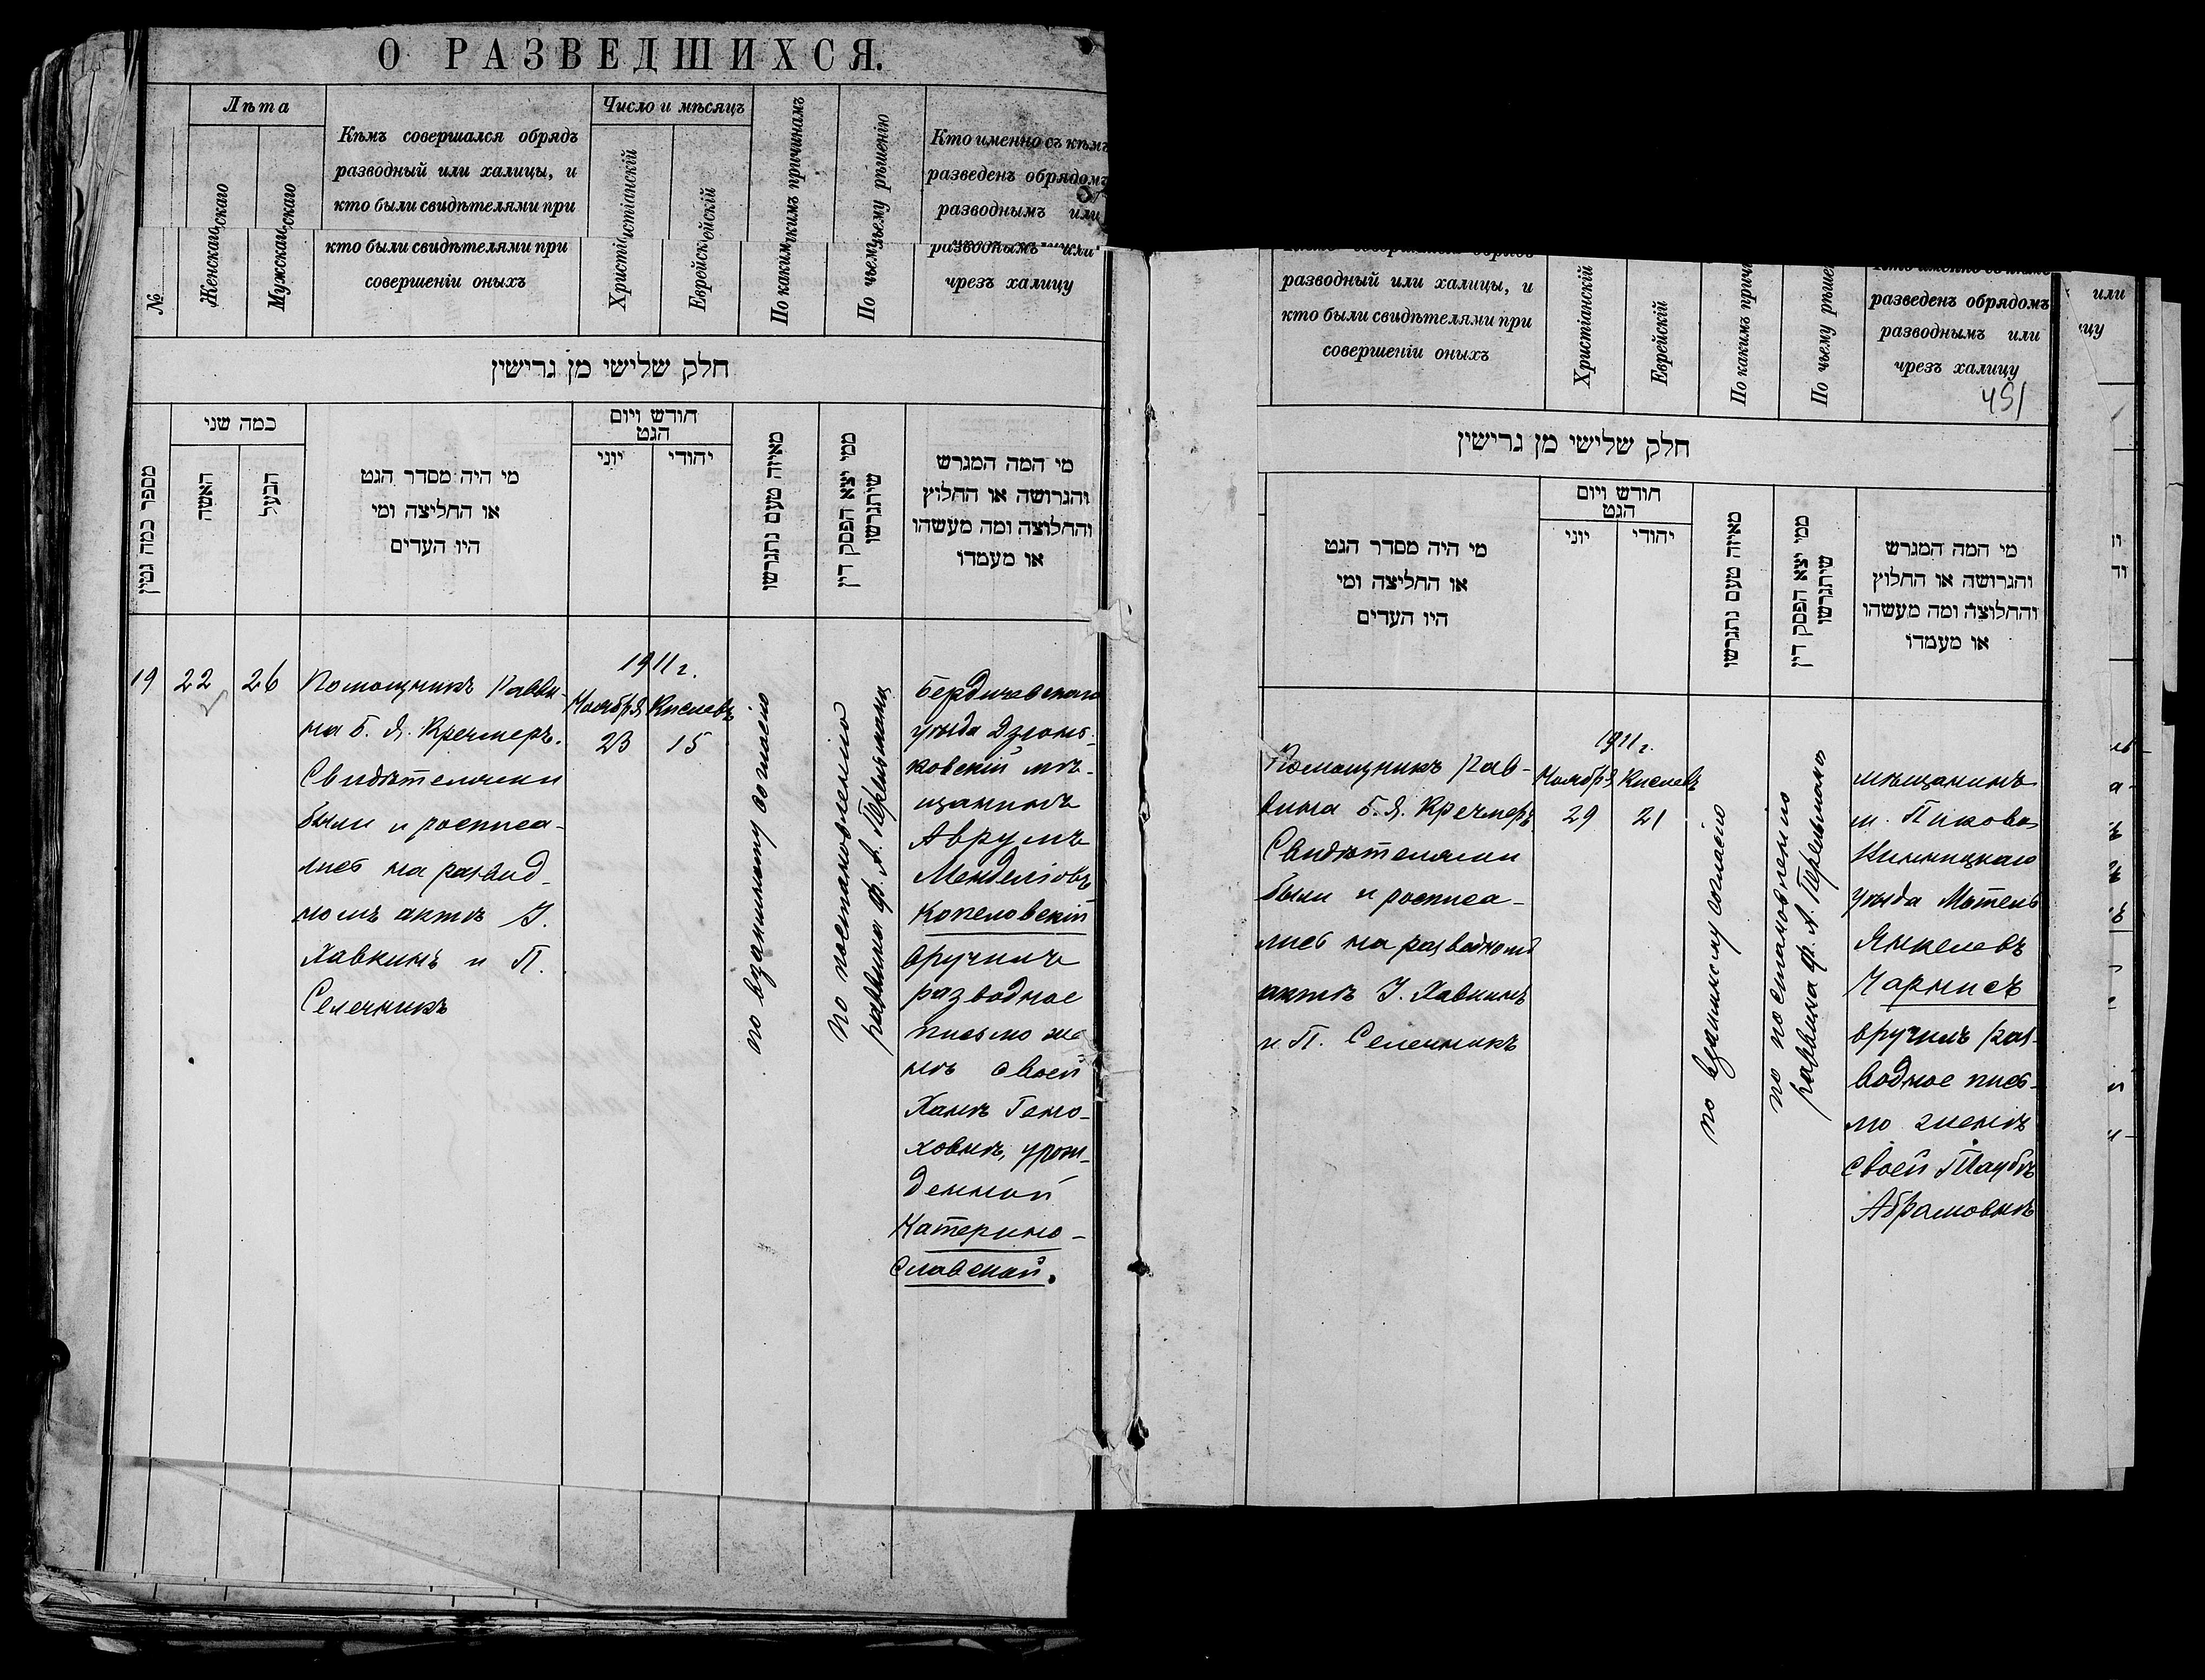 О РАЗВЕДШИХСЯ.
Лѣта
Женскаго
Мужскаго
№
Кѣмъ совершался обрядъ
разводный или халицы, и
кто были свидѣтелями при
кто были свидѣтелями при
совершеніи оныхъ
Число и мѣсяцъ
Христіанскій
Еврейскій
По какимъ причинамъ
По чьему рѣшенію
Кто именно съ кѣмъ
разведенъ обрядомъ
разводнымъ или
разводнымъ или
чрезъ халицу
חלק שלישי מן גרישין
מספר כמה גטין
כמה שני
האשה
הבעל
מי היה מסדר הגט
או החליצה ומי
היו העדים
חודש ויום
הגט
יוני
יהודי
מאיזה טעם נתגרשו
ממי יצא הפסק דין
שיתגרשו
מי המה המגרש
והגרושה או החלוץ
והחלוצה ומה מעשהו
או מעמדו
19
22
26
Помощникъ Равви-
на Б. Я. Кречмеръ.
Свидѣтелями
были и росписа-
лись на развод-
номъ актѣ І.
Хавкинъ и П.
Селечникъ
1911 г.
Ноября Кислевъ
23 15
по взаимному согласію
по постановленію
раввина Ф. А. Перельмана
Бердичевскаго
уѣзда Дзюнь-
ковскій мѣ-
щанинъ
Аврумъ
Менделіовъ
Копеловскій
вручилъ
разводное
письмо же
нѣ своей
Ханѣ Гено-
ховнѣ, урож-
денной
Катерино-
славской.
разводный или халицы, и
кто были свидѣтелями при
совершеніи оныхъ
Христіанскій
Еврейскій
По какимъ прич
По чьему рѣше
разведенъ обрядомъ
разводнымъ или
чрезъ халицу
451
חלק שלישי מן גרישין
מי היה מסדר הגט
או החליצה ומי
היו העדים
חודש ויום
הגט
יוני
יהודי
מאיזה טעם נתגרשו
ממי יצא הפסק דין
שיתגרשו
מי המה המגרש
והגרושה או החלוץ
והחלוצה ומה מעשהו
או מעמדו
Помощникъ Рав-
вина Б. Я. Кречмеръ
Свидѣтелями
были и росписа-
лись на разводномъ
актѣ І. Хавкинъ
и П. Селечникъ
1911 г.
Ноября Кислевъ
29 21
по взаимному согласію
по постановленію
раввина Ф. А. Перельмана
мѣщанинъ
м. Пикова
Винницкаго
уѣзда Мотель
Янкелевъ
Чарнисъ
вручилъ раз-
водное пись-
мо женѣ
своей Таубѣ
Абрамовнѣ
или
цу